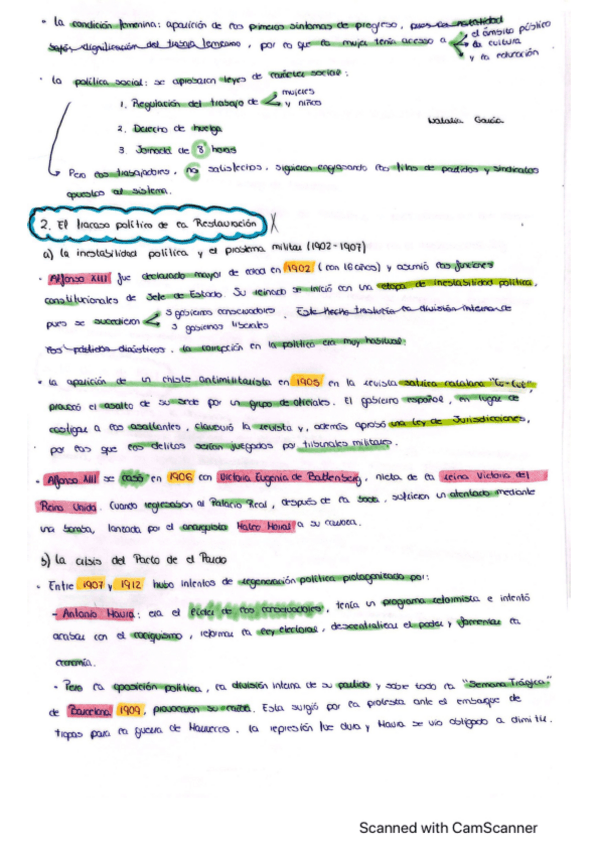 · la condición femenina: aparición de los primeros síntomas de progreso,
dignificación del trabajo femenino, por lo que la mujer tenía acceso a el ámbito público
la cultura
y la educación
· La política social: se aprobaron leyes de carácter social:
1. Regulación del trabajo de mujeres
y niños
2. Derecho de huelga
Natalia García
3. Jornada de 8 horas
Pero los trabajadores, no satisfechos, siguieron engrosando las filas de partidos y sindicatos
opuestos al sistema.
2. El fracaso político de la Restauración
a) la inestabilidad política y el problema militar (1902-1907)
· Alfonso XIII fue declarado mayor de edad en 1902 (con 16 años) y asumió las funciones
constitucionales de Jefe de Estado. Su reinado se inició con una etapa de inestabilidad política,
pues se sucedieron 3 gobiernos conservadores. Este hecho trasladó la división interna de
3 gobiernos liberales
los partidos dinásticos. la corrupción en la política era muy habitual.
· la aparición de un chiste antimilitarista en 1905 en la revista satírica catalana "Cu-Cut",
provocó el asalto de su sede por un grupo de oficiales. El gobierno español, en lugar de
castigar a los asaltantes, clausuró la revista y, además aprobó una ley de Jurisdicciones,
por las que los delitos serían juzgados por tribunales militares.
· Alfonso XIII se casó en 1906 con Victoria Eugenia de Battenberg, nieta de la reina Victoria del
Reino Unido. Cuando regresaban al Palacio Real, después de la boda, sufrieron un atentado mediante
una bomba, lanzada por el anarquista Mateo Morral a su carroza.
b) la crisis del Pacto de el Pardo
· Entre 1907 y 1912 hubo intentos de regeneración política protagonizado por:
- Antonio Maura: era el líder de los conservadores, tenía un programa reformista e intentó
acabar con el caciquismo, reformar la ley electoral, descentralizar el poder y fomentar la
economía.
· Pero la oposición política, la división interna de su partido y sobre todo la "Semana Trágica"
de Barcelona 1909, provocaron su caída. Esta surgió por la protesta ante el embarque de
tropas para la guerra de Marruecos. la represión fue dura y Maura se vio obligado a dimitir.
Scanned with CamScanner